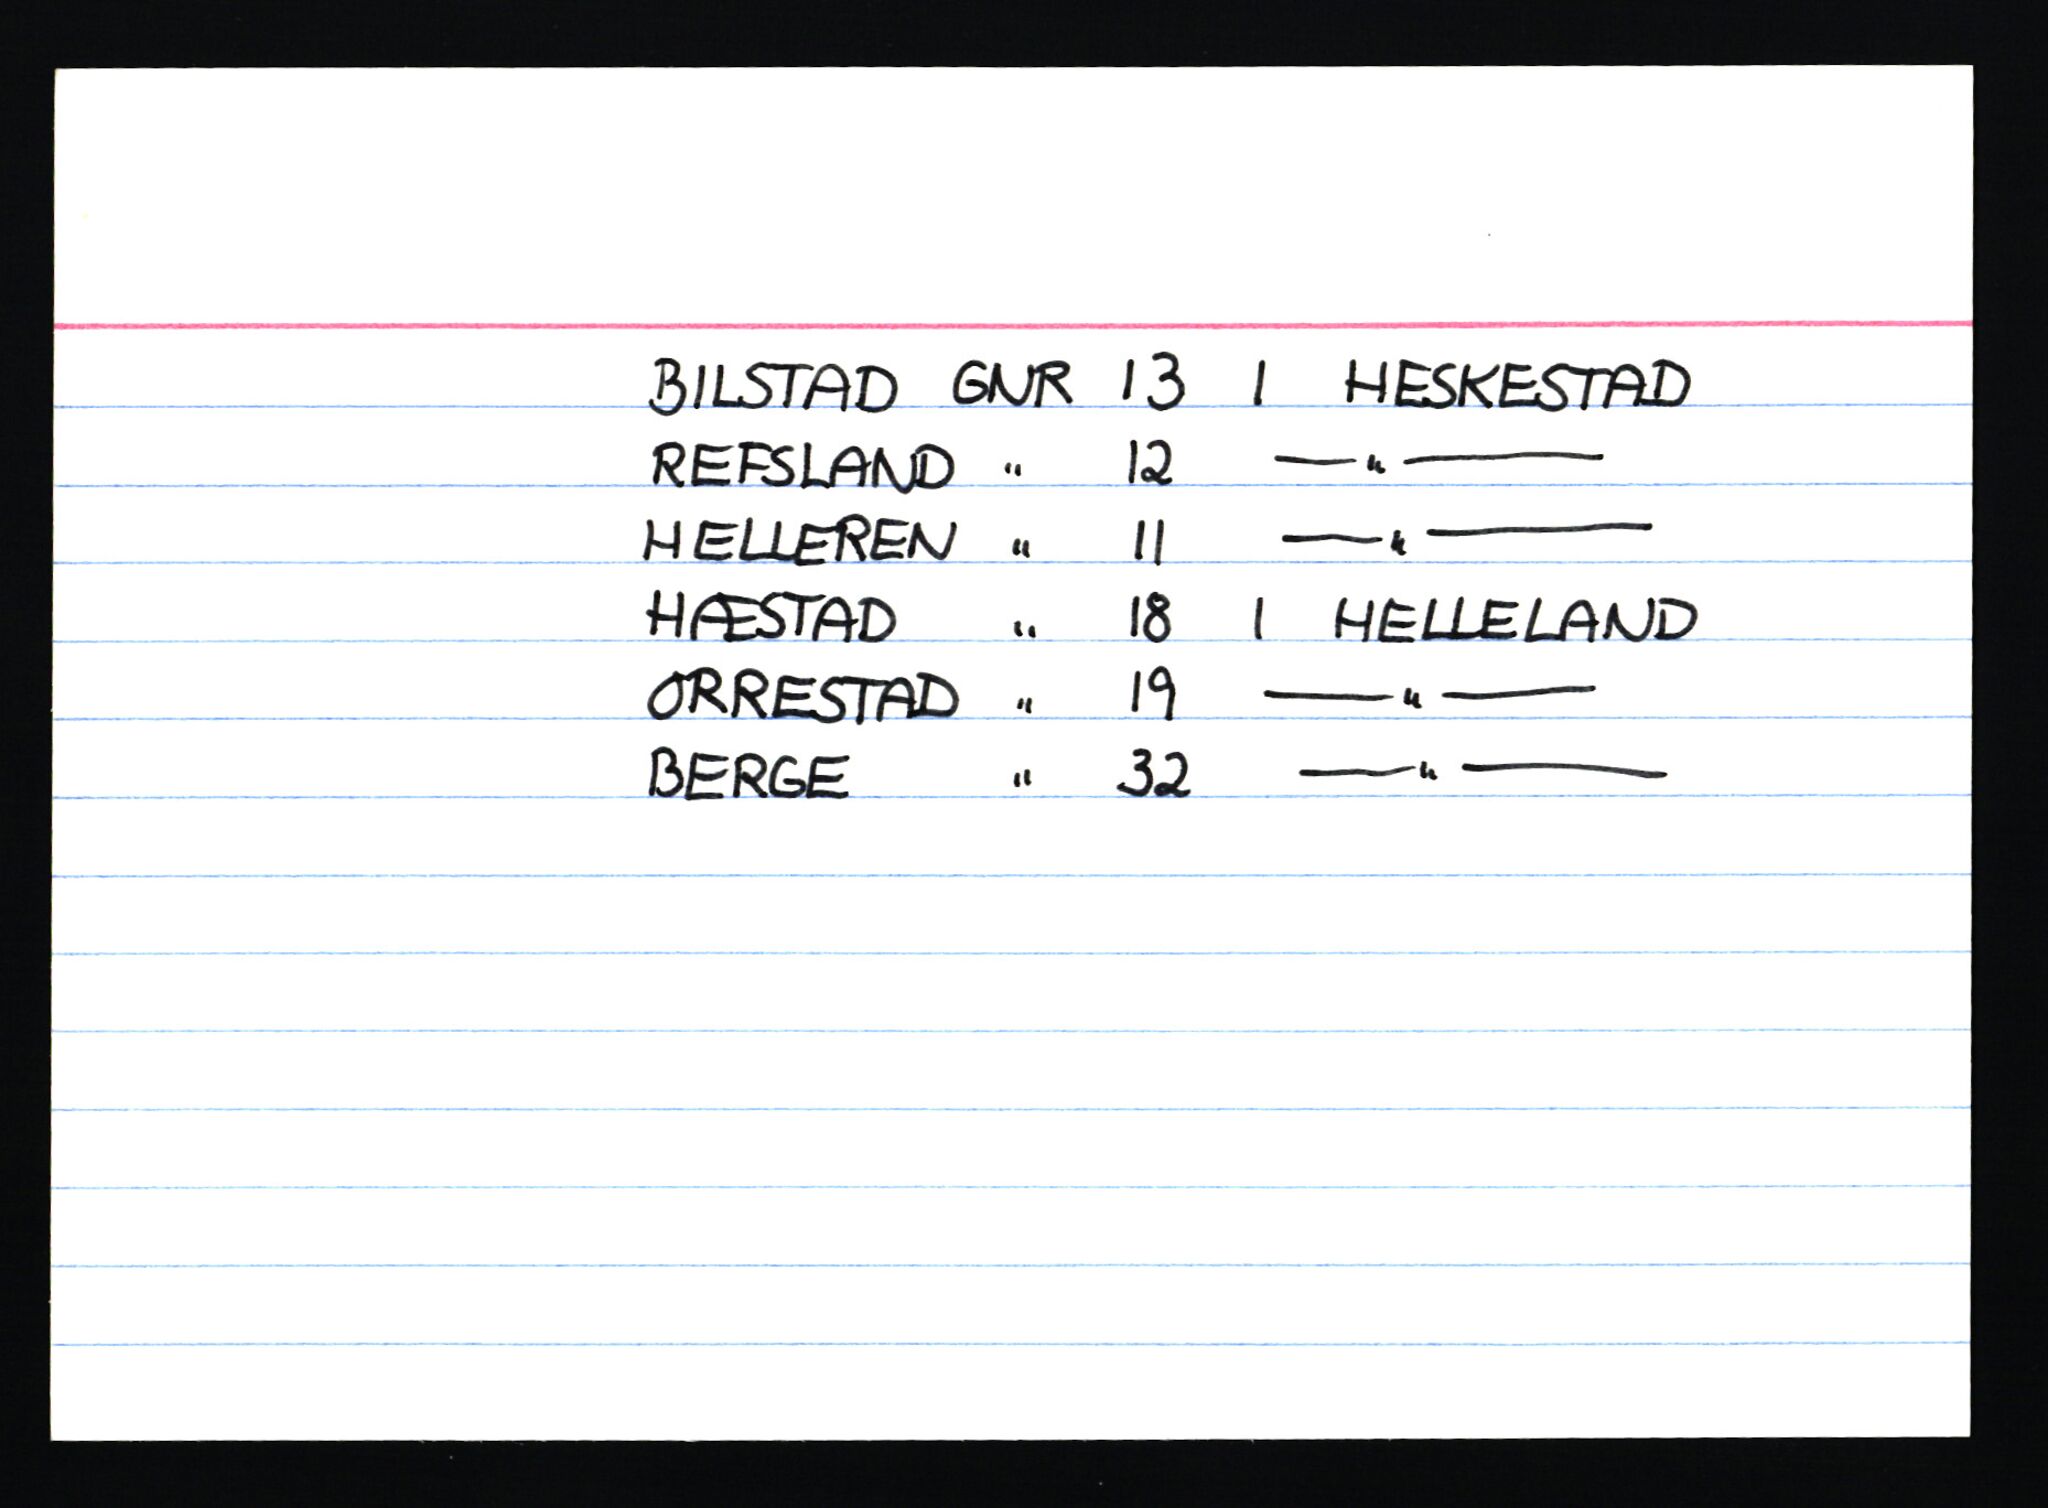 BILSTAD GNR 13 I HESKESTAD
REFSLAND " 12 —"—
HELLEREN " 11 —"—
HÆSTAD " 18 I HELLELAND
ORRESTAD " 19 —"—
BERGE " 32 —"—